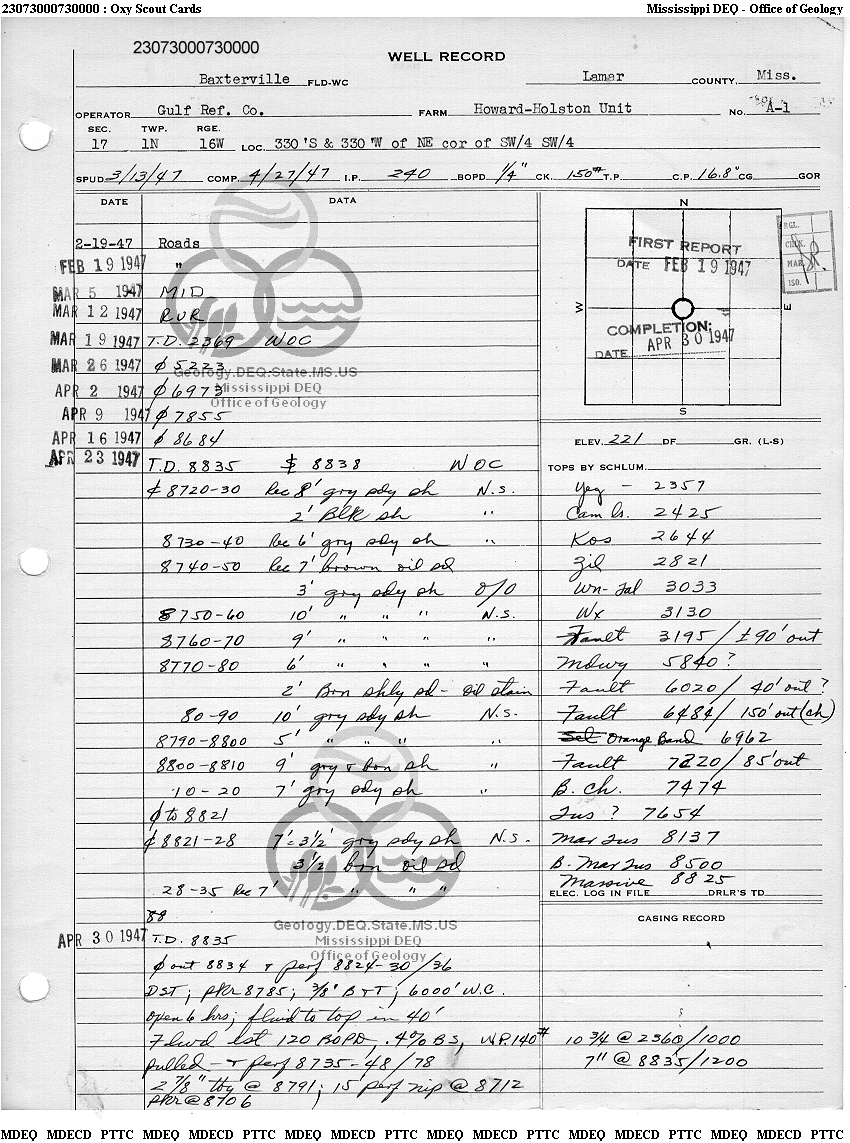 23073000730000 : Oxy Scout Cards Mississippi DEQ - Office of Geology
23073000730000
WELL RECORD
Baxterville FLD-WC Lamar COUNTY, Miss.
OPERATOR Gulf Ref. Co. FARM Howard-Holston Unit No. A-1
SEC. TWP. RGE.
17 1N 16W LOC. 330'S & 330'W of NE cor of SW/4 SW/4
SPUD 3/13/47 COMP. 4/27/47 I.P. 240 BOPD 1/4" CK. 150# T.P. C.P. 16.8° CG GOR
DATE DATA
2-19-47 Roads
FEB 19 1947 "
MAR 5 1947 MID
MAR 12 1947 RUR
MAR 19 1947 T.D. 2369 WOC
MAR 26 1947 ϕ 5223
APR 2 1947 ϕ 6973
APR 9 1947 ϕ 7855
APR 16 1947 ϕ 8684
APR 23 1947 T.D. 8835 $ 8838 WOC
¢ 8720-30 Rec 8' gry sdy sh N.S.
2' Blk sh "
8730-40 Rec 6' gry sdy sh "
8740-50 Rec 7' brown oil sd
3' gry sdy sh O/O
8750-60 10' " " " N.S.
8760-70 9' " " " "
8770-80 6' " " " "
2' Brn shly sd - oil stain
80-90 10' gry sdy sh N.S.
8790-8800 5' " " " "
8800-8810 9' gry & brn sh "
10-20 7' gry sdy sh "
ϕ to 8821
¢ 8821-28 7' = 3 1/2' gry sdy sh N.S.
3 1/2 brn oil sd
28-35 Rec 7' " " "
88
APR 30 1947 T.D. 8835
ϕ out 8834 & perf 8824-30/36
DST; pkr 8785; 3/8" B&T; 6000' W.C.
open 6 hrs; fluid to top in 40'
Flwd est 120 BOPD, .4% BS, WP. 140#
pulled - & perf 8735-48/78
2 7/8" tbg @ 8791; 15 perf nip @ 8712
pkr @ 8706
N
W
E
S
FIRST REPORT
DATE FEB 19 1947
COMPLETION:
DATE APR 30 1947
RGL.
CHK.
MAP
ISO.
ELEV. 221 DF GR. (L-S)
TOPS BY SCHLUM.
Yeg - 2357
Cam ls. 2425
Kos 2644
Zil 2821
Wn-Tal 3033
Wx 3130
Fault 3195 / ±90' out
Mdwy 5840?
Fault 6020 / 40' out?
Fault 6484 / 150' out (ch)
Sel Orange Band 6962
Fault 7220 / 85' out
B. Ch. 7474
Tus ? 7654
Mar Tus 8137
B. Mar Tus 8500
Massive 8825
ELEC. LOG IN FILE DRLR'S TD
CASING RECORD
10 3/4 @ 2360/1000
7" @ 8835/1200
Geology.DEQ.State.MS.US
Mississippi DEQ
Office of Geology
Geology.DEQ.State.MS.US
Mississippi DEQ
Office of Geology
MDEQ MDECD PTTC MDEQ MDECD PTTC MDEQ MDECD PTTC MDEQ MDECD PTTC MDEQ MDECD PTTC MDEQ MDECD PTTC